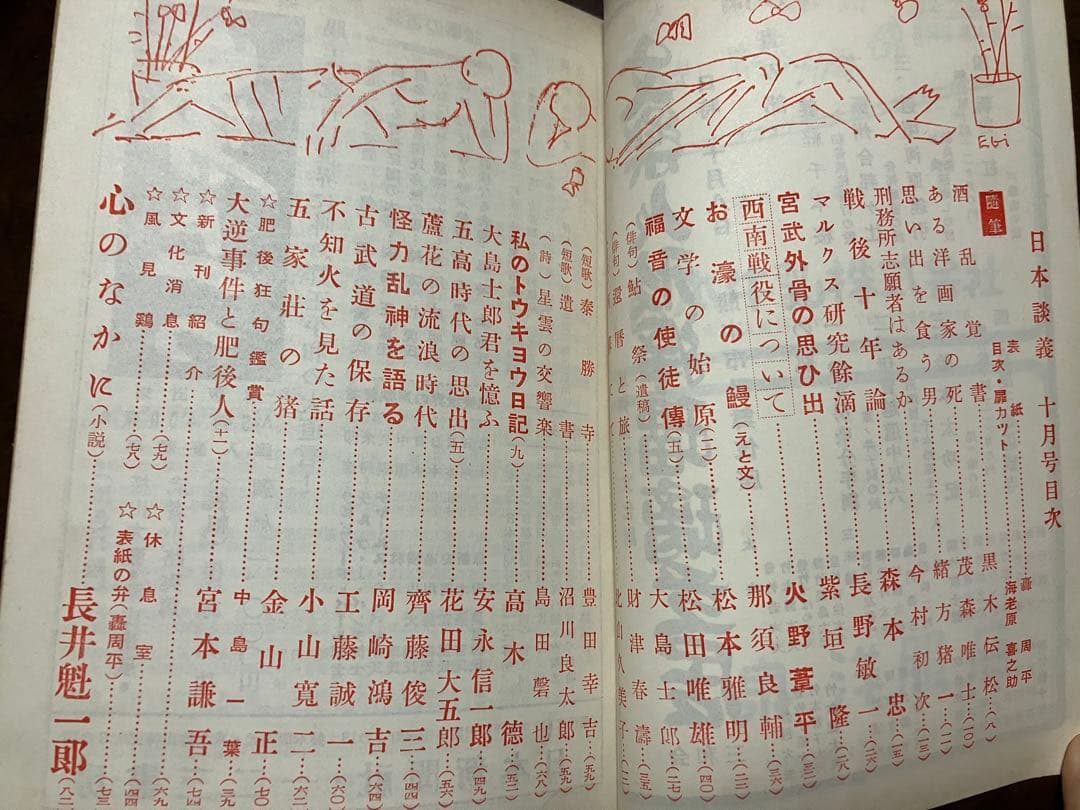 日本談義 十月号目次
表紙 轟周平
目次・扉カット 海老原喜之助
随筆
酒乱覚書 黒木伝松…(八)
ある洋画家の死 茂森唯士…(一〇)
思い出を食う男 緒方猪一…(一一)
刑務所志願者はあるか 今村初次…(一三)
戦後十年論 森本忠…(一五)
マルクス研究餘滴 長野敏一
宮武外骨の思ひ出 紫垣隆…(一八)
西南戦役について 火野葦平…(二〇)
お濠の鰻(えと文) 那須良輔
文学の始原(二) 松本雅明…(二二)
福音の使徒傳(五) 松田唯雄…(四〇)
(俳句)鮎祭(遺稿) 大島士郎…(二七)
(俳句)還暦と旅 財津春濤…(三五)
北山久美子
(短歌)泰勝寺 豊田幸吉…(五九)
(短歌)遺書 沼川良太郎…(五九)
(詩)星雲の交響楽 島田磬也…(六八)
私のトウキヨウ日記(九) 高木徳…(五二)
大島士郎君を憶ふ 安永信一郎…(四九)
五高時代の思出(五) 花田大五郎…(五六)
蘆花の流浪時代 齊藤俊三…(四二)
怪力乱神を語る 岡崎鴻吉…(六四)
古武道の保存 工藤誠一…(六〇)
不知火を見た話 小山寛二…(六二)
五家荘の猪 金山正…(七〇)
☆肥後狂句鑑賞 中島一葉…(三九)
大逆事件と肥後人(十一) 宮本謙吾…(七四)
☆新刊紹介…(四四)
☆文化消息…(七九) ☆休息室…(四四)
☆風見鶏…(七八) ☆表紙の弁(轟周平)…(七三)
心のなかに(小説) 長井魁一郎…(八二)
EBi